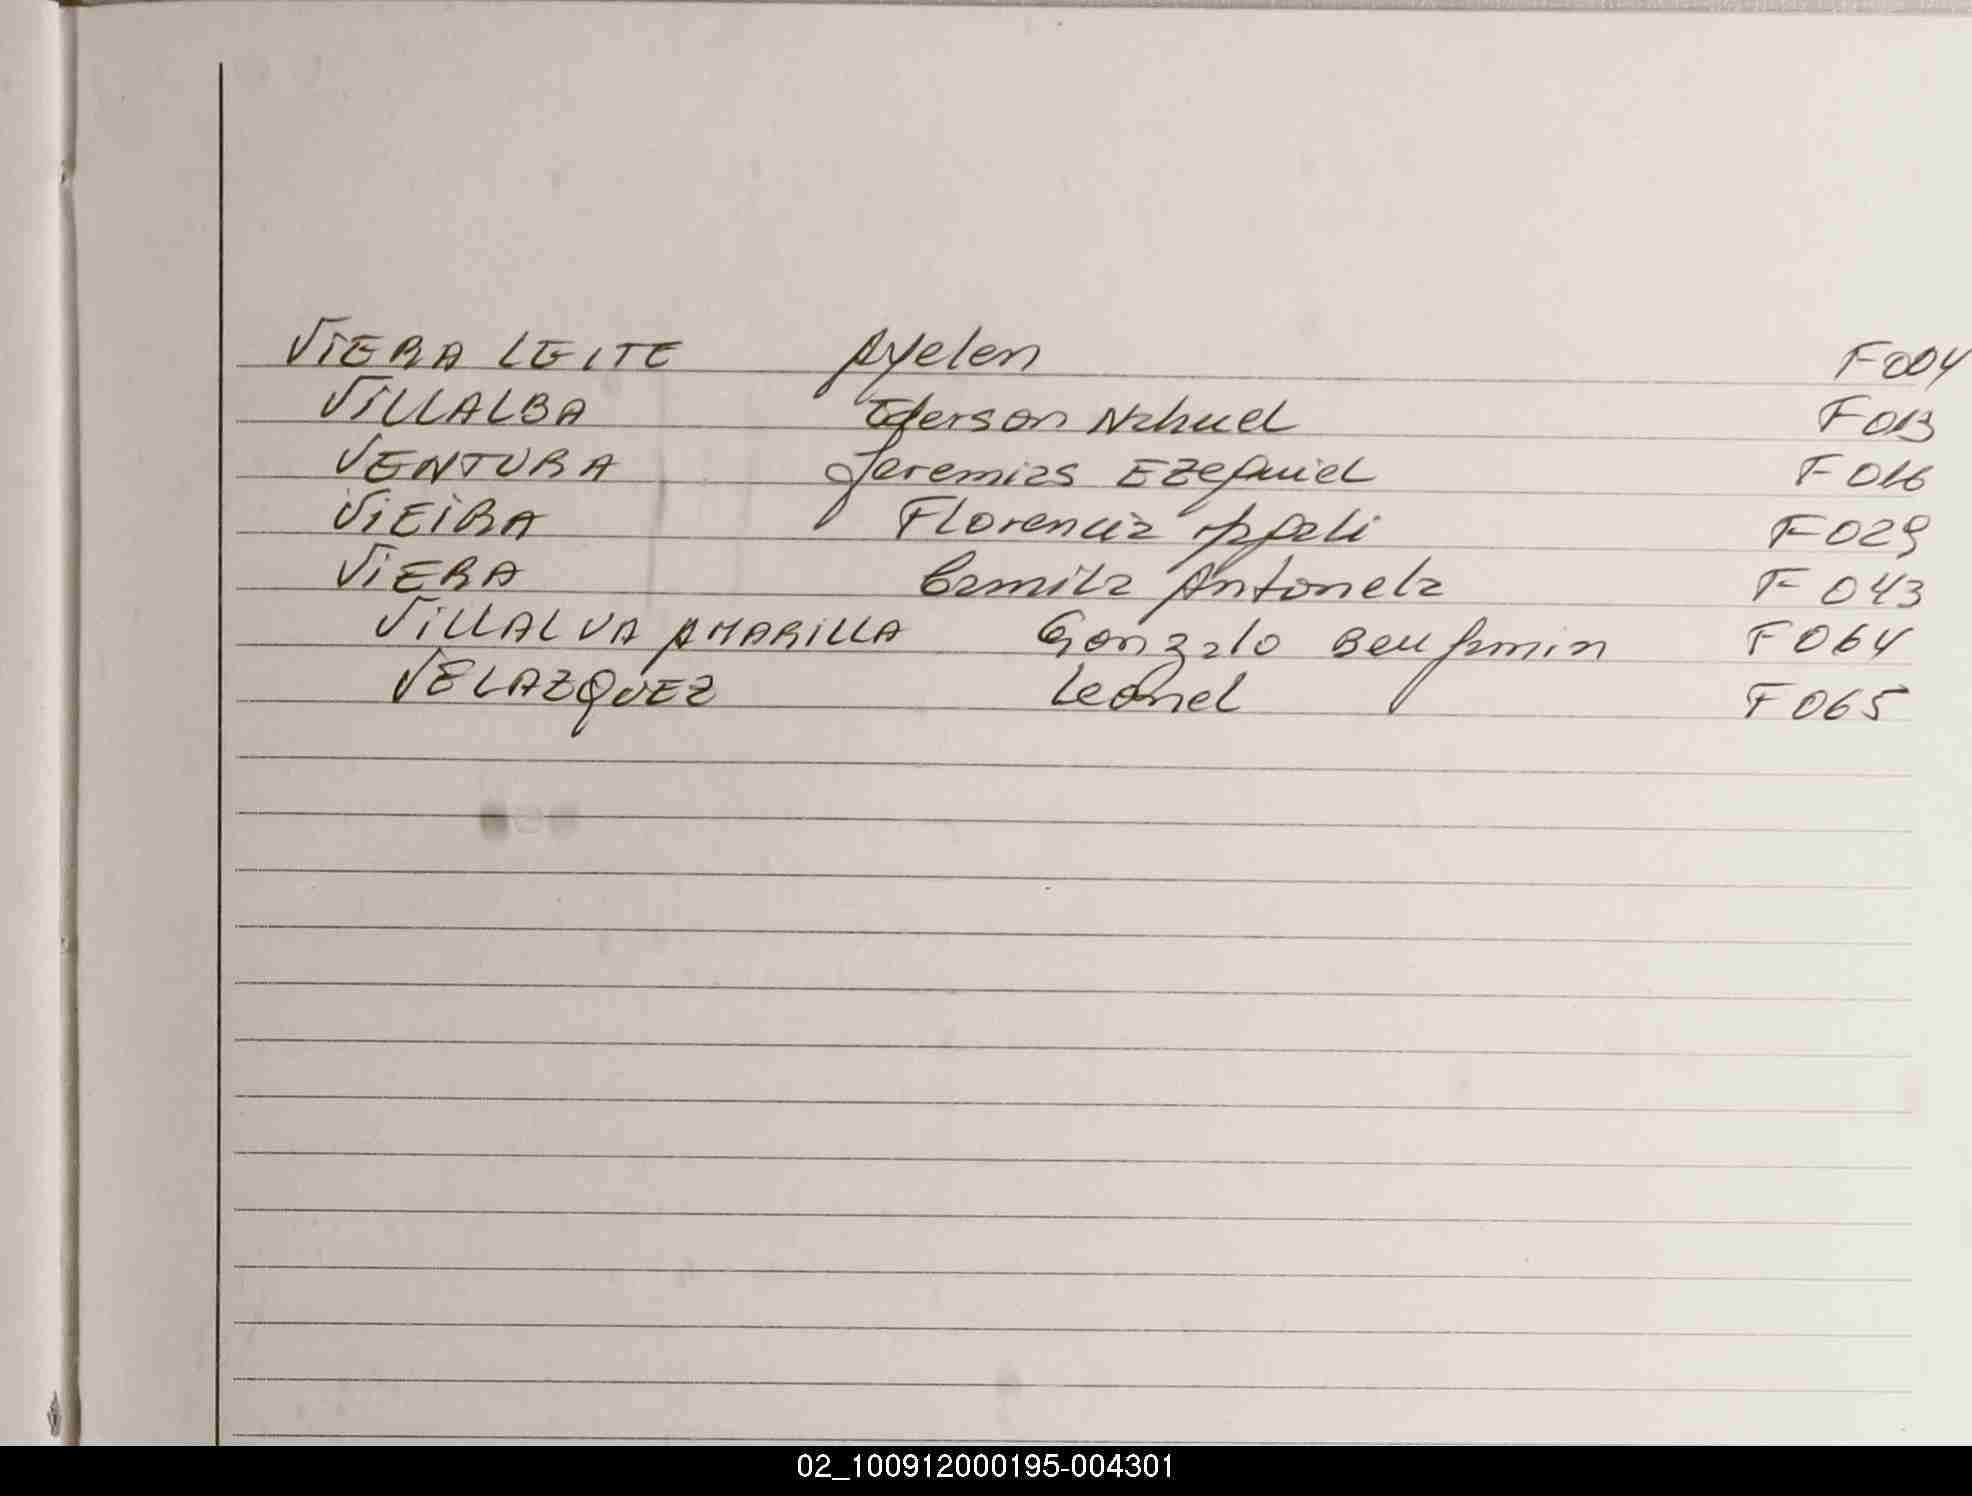 VIERA LEITE Ayelen F004
VILLALBA Ederson Nahuel F013
VENTURA Jeremias Ezequiel F016
VIEIRA Florencia F029
VIERA Camila Antonela F043
VILLALVA AMARILLA Gonzalo Benjamin F064
VELAZQUEZ Leonel F065
02_100912000195-004301